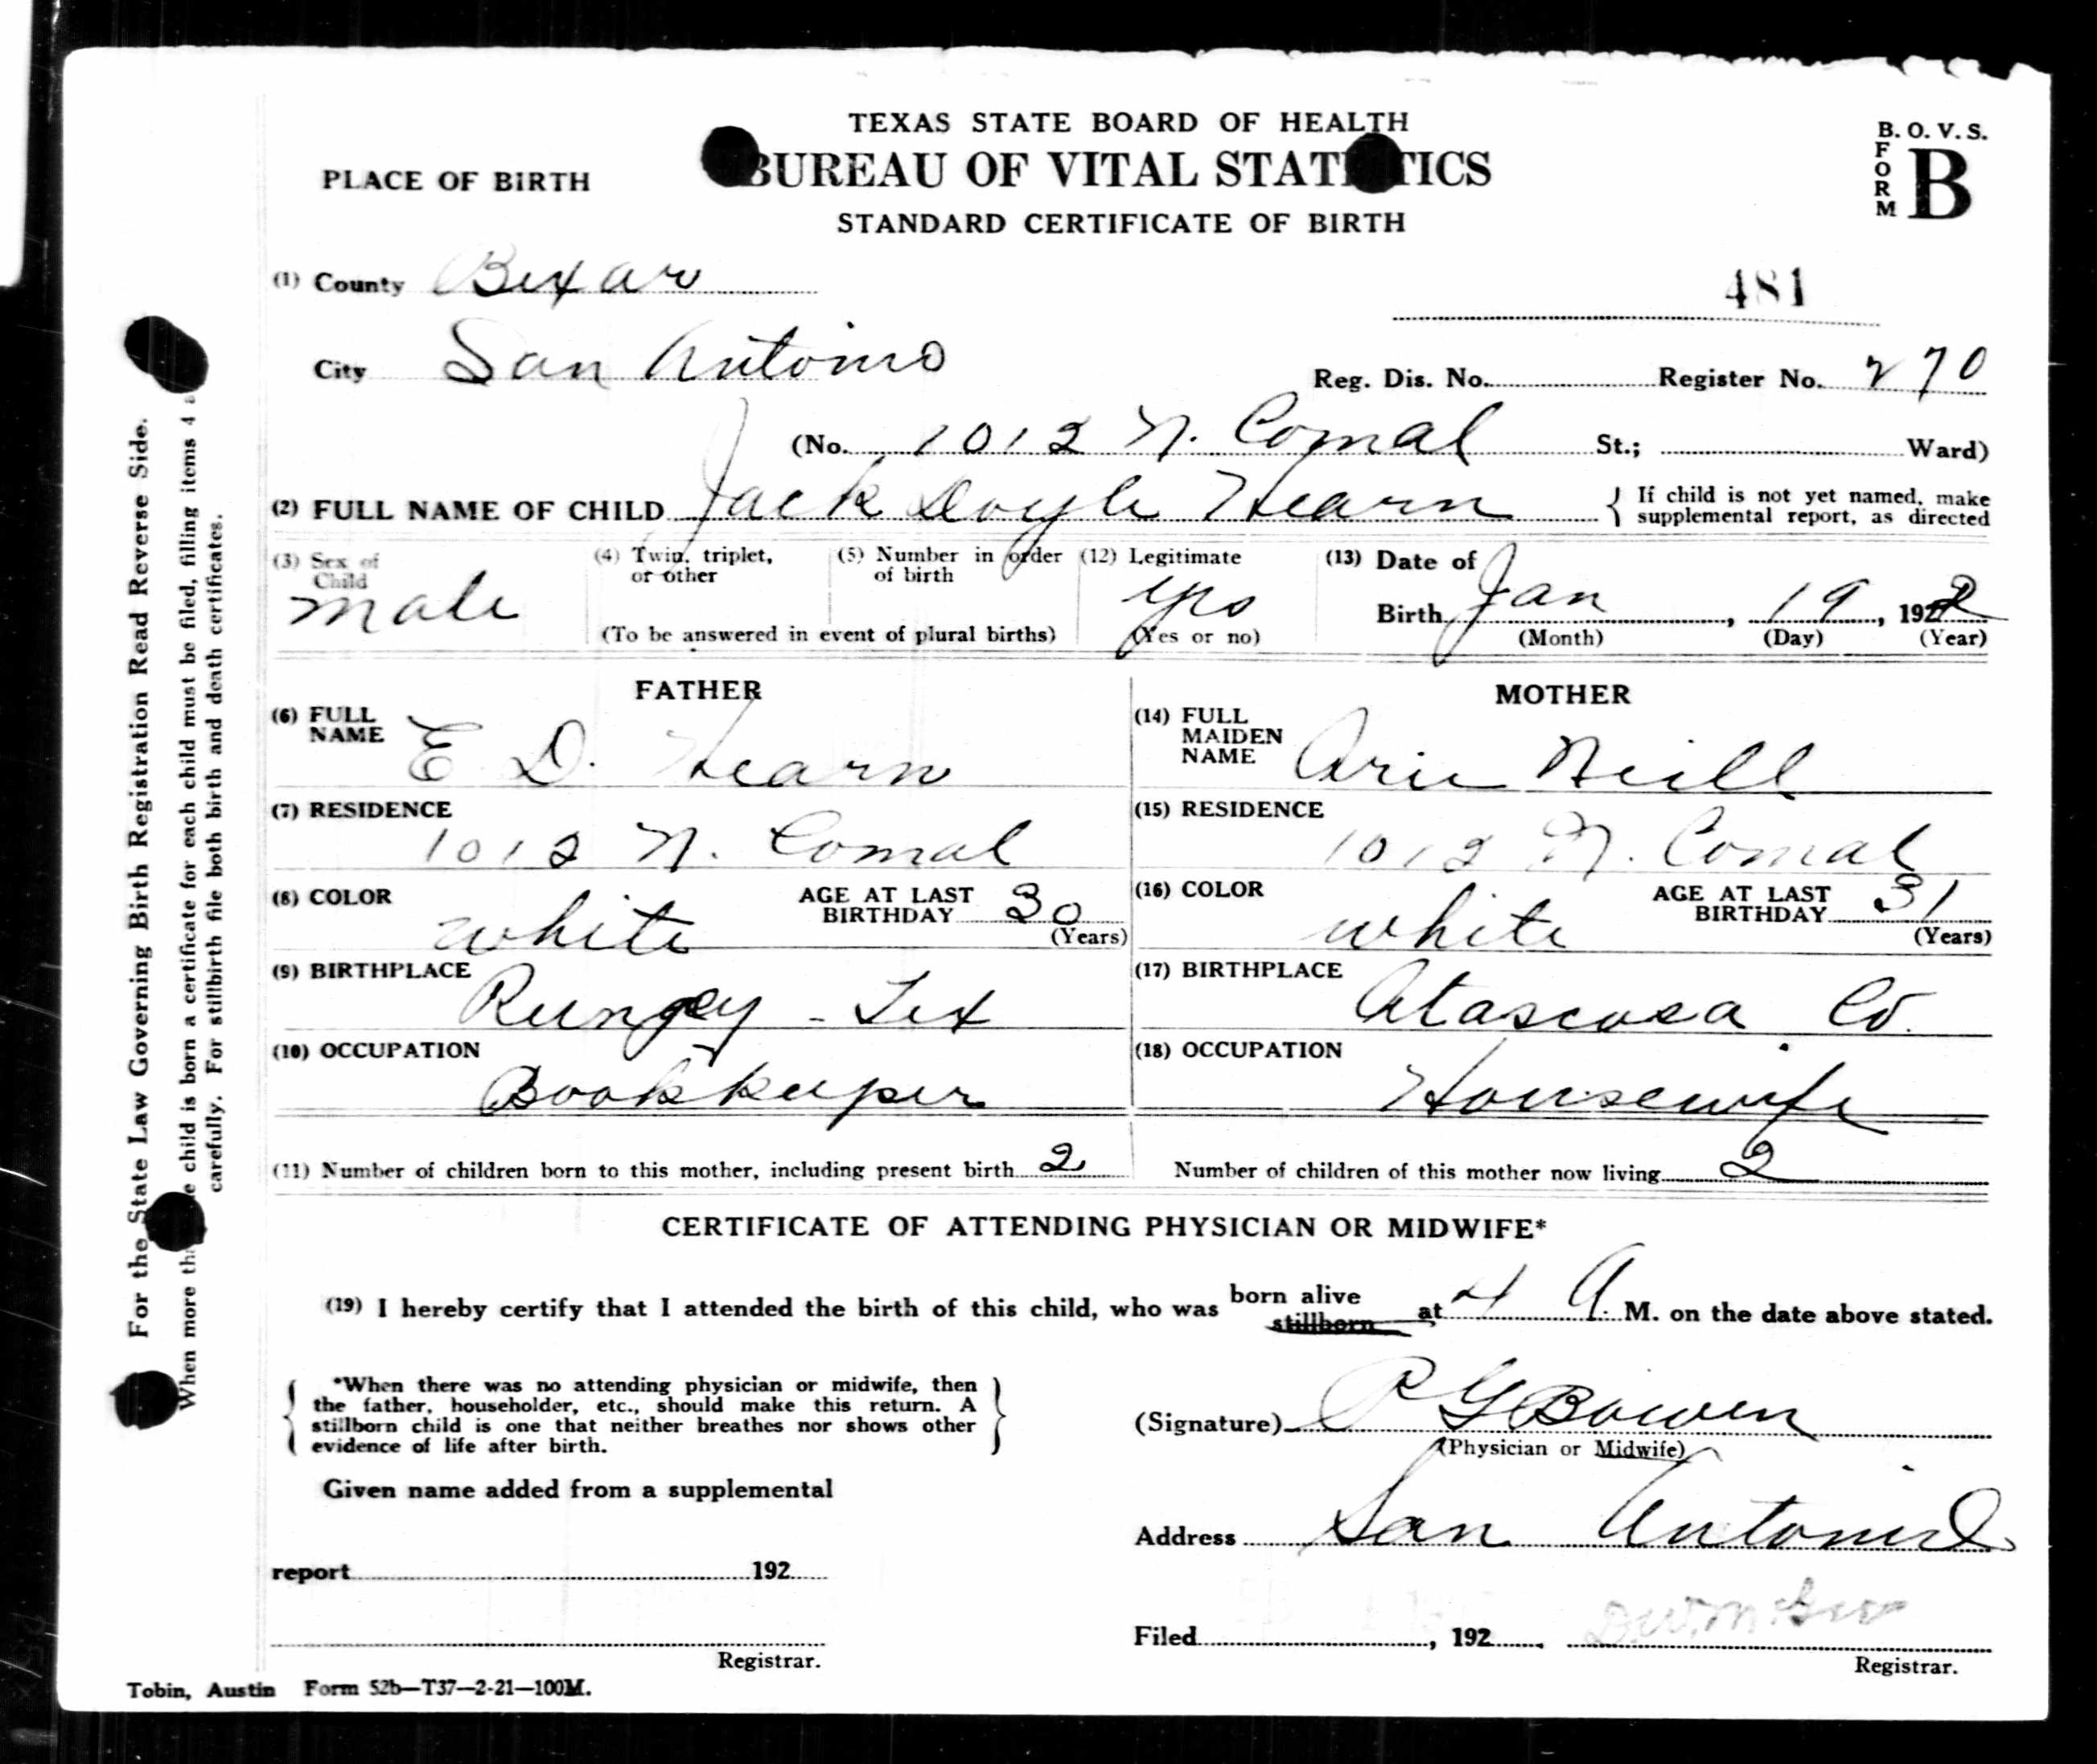 TEXAS STATE BOARD OF HEALTH
PLACE OF BIRTH
BUREAU OF VITAL STATISTICS
STANDARD CERTIFICATE OF BIRTH
B. O. V. S.
FORM B
(1) County Bexar
481
City San Antonio
Reg. Dis. No. Register No. 270
(No. 1012 N. Comal St.; Ward)
(2) FULL NAME OF CHILD Jack Doyle Hearn { If child is not yet named, make
supplemental report, as directed
(3) Sex of Child male
(4) Twin, triplet, or other
(5) Number in order of birth
(To be answered in event of plural births)
(12) Legitimate yes
(Yes or no)
(13) Date of
Birth Jan, 19, 1922
(Month) (Day) (Year)
FATHER
(6) FULL NAME E. D. Hearn
(7) RESIDENCE
1012 N. Comal
(8) COLOR white AGE AT LAST BIRTHDAY 30
(Years)
(9) BIRTHPLACE
Rungey - Tex
(10) OCCUPATION
Bookkeeper
MOTHER
(14) FULL MAIDEN NAME Arie Neill
(15) RESIDENCE
1012 N. Comal
(16) COLOR white AGE AT LAST BIRTHDAY 31
(Years)
(17) BIRTHPLACE
Atascosa Co.
(18) OCCUPATION
Housewife
(11) Number of children born to this mother, including present birth 2 Number of children of this mother now living 2
CERTIFICATE OF ATTENDING PHYSICIAN OR MIDWIFE*
(19) I hereby certify that I attended the birth of this child, who was born alive stillborn at 4 A. M. on the date above stated.
*When there was no attending physician or midwife, then
the father, householder, etc., should make this return. A
stillborn child is one that neither breathes nor shows other
evidence of life after birth.
(Signature) P G Bowen
(Physician or Midwife)
Given name added from a supplemental
Address San Antonio
report 192
Filed , 192 , D.W.
Registrar.
Registrar.
Tobin, Austin Form 52b—T37—2-21—100M.
For the State Law Governing Birth Registration Read Reverse Side.
When more child is born a certificate for each child must be filed, filling items 4
carefully. For stillbirth file both birth and death certificates.